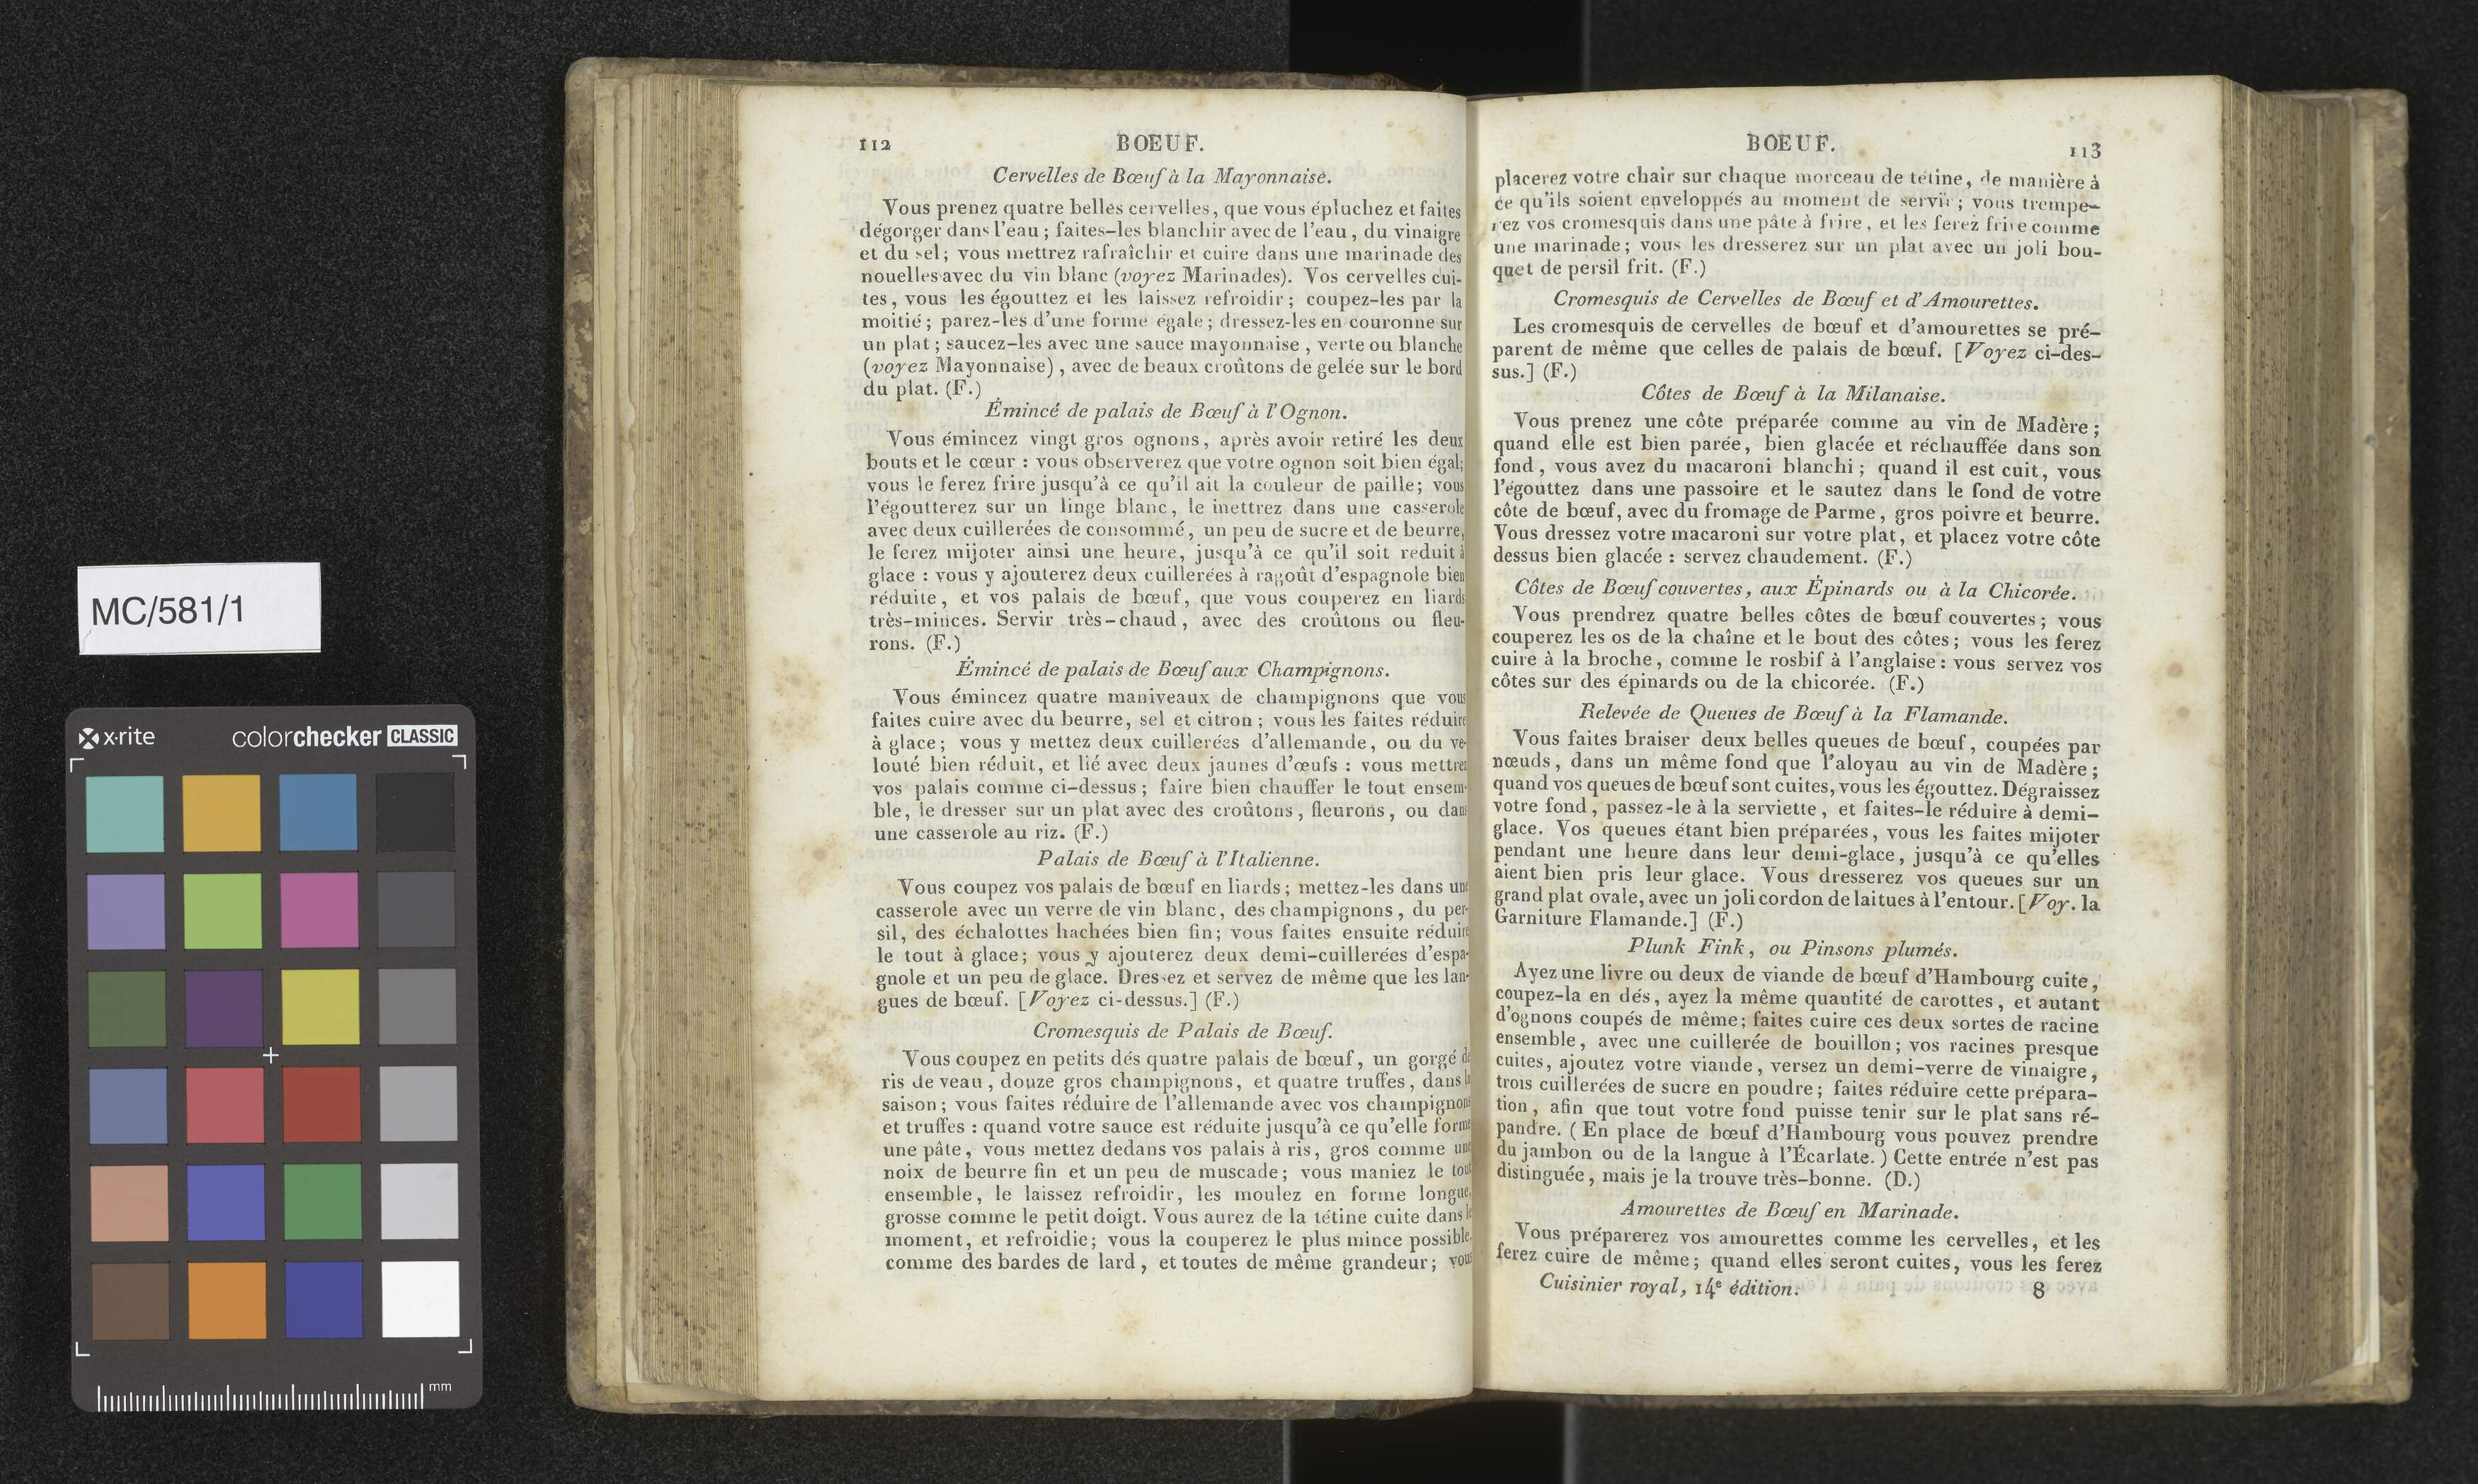 MC/581/1
x·rite colorchecker CLASSIC
mm
112 BOEUF.
Cervelles de Bœuf à la Mayonnaise.
Vous prenez quatre belles cervelles, que vous épluchez et faites
dégorger dans l'eau ; faites-les blanchir avec de l'eau, du vinaigre
et du sel ; vous mettrez rafraîchir et cuire dans une marinade des
nouelles avec du vin blanc (voyez Marinades). Vos cervelles cui-
tes, vous les égouttez et les laissez refroidir ; coupez-les par la
moitié ; parez-les d'une forme égale ; dressez-les en couronne sur
un plat ; saucez-les avec une sauce mayonnaise, verte ou blanche
(voyez Mayonnaise), avec de beaux croûtons de gelée sur le bord
du plat. (F.)
Émincé de palais de Bœuf à l'Ognon.
Vous émincez vingt gros ognons, après avoir retiré les deux
bouts et le cœur : vous observerez que votre ognon soit bien égal;
vous le ferez frire jusqu'à ce qu'il ait la couleur de paille; vous
l'égoutterez sur un linge blanc, le mettrez dans une casserole
avec deux cuillerées de consommé, un peu de sucre et de beurre,
le ferez mijoter ainsi une heure, jusqu'à ce qu'il soit reduit à
glace : vous y ajouterez deux cuillerées à ragoût d'espagnole bien
réduite, et vos palais de bœuf, que vous couperez en liards
très-minces. Servir très-chaud, avec des croûtons ou fleu-
rons. (F.)
Émincé de palais de Bœuf aux Champignons.
Vous émincez quatre maniveaux de champignons que vous
faites cuire avec du beurre, sel et citron ; vous les faites réduire
à glace; vous y mettez deux cuillerées d'allemande, ou du ve-
louté bien réduit, et lié avec deux jaunes d'œufs : vous mettrez
vos palais comme ci-dessus ; faire bien chauffer le tout ensem-
ble, le dresser sur un plat avec des croûtons, fleurons, ou dans
une casserole au riz. (F.)
Palais de Bœuf à l'Italienne.
Vous coupez vos palais de bœuf en liards ; mettez-les dans une
casserole avec un verre de vin blanc, des champignons, du per-
sil, des échalottes hachées bien fin; vous faites ensuite réduire
le tout à glace; vous y ajouterez deux demi-cuillerées d'espa-
gnole et un peu de glace. Dressez et servez de même que les lan-
gues de bœuf. [Voyez ci-dessus.] (F.)
Cromesquis de Palais de Bœuf.
Vous coupez en petits dés quatre palais de bœuf, un gorgé de
ris de veau, douze gros champignons, et quatre truffes, dans la
saison ; vous faites réduire de l'allemande avec vos champignons
et truffes : quand votre sauce est réduite jusqu'à ce qu'elle forme
une pâte, vous mettez dedans vos palais à ris, gros comme une
noix de beurre fin et un peu de muscade; vous maniez le tout
ensemble, le laissez refroidir, les moulez en forme longue,
grosse comme le petit doigt. Vous aurez de la tétine cuite dans le
moment, et refroidie; vous la couperez le plus mince possible,
comme des bardes de lard, et toutes de même grandeur; vous
BOEUF. 113
placerez votre chair sur chaque morceau de tétine, de manière à
ce qu'ils soient enveloppés au moment de servir ; vous trempe-
rez vos cromesquis dans une pâte à frire, et les ferez frire comme
une marinade; vous les dresserez sur un plat avec un joli bou-
quet de persil frit. (F.)
Cromesquis de Cervelles de Bœuf et d'Amourettes.
Les cromesquis de cervelles de bœuf et d'amourettes se pré-
parent de même que celles de palais de bœuf. [Voyez ci-des-
sus.] (F.)
Côtes de Bœuf à la Milanaise.
Vous prenez une côte préparée comme au vin de Madère ;
quand elle est bien parée, bien glacée et réchauffée dans son
fond, vous avez du macaroni blanchi ; quand il est cuit, vous
l'égouttez dans une passoire et le sautez dans le fond de votre
côte de bœuf, avec du fromage de Parme, gros poivre et beurre.
Vous dressez votre macaroni sur votre plat, et placez votre côte
dessus bien glacée : servez chaudement. (F.)
Côtes de Bœuf couvertes, aux Épinards ou à la Chicorée.
Vous prendrez quatre belles côtes de bœuf couvertes ; vous
couperez les os de la chaîne et le bout des côtes ; vous les ferez
cuire à la broche, comme le rosbif à l'anglaise : vous servez vos
côtes sur des épinards ou de la chicorée. (F.)
Relevée de Queues de Bœuf à la Flamande.
Vous faites braiser deux belles queues de bœuf, coupées par
nœuds, dans un même fond que l'aloyau au vin de Madère ;
quand vos queues de bœuf sont cuites, vous les égouttez. Dégraissez
votre fond, passez-le à la serviette, et faites-le réduire à demi-
glace. Vos queues étant bien préparées, vous les faites mijoter
pendant une heure dans leur demi-glace, jusqu'à ce qu'elles
aient bien pris leur glace. Vous dresserez vos queues sur un
grand plat ovale, avec un joli cordon de laitues à l'entour. [Voy. la
Garniture Flamande.] (F.)
Plunk Fink, ou Pinsons plumés.
Ayez une livre ou deux de viande de bœuf d'Hambourg cuite,
coupez-la en dés, ayez la même quantité de carottes, et autant
d'ognons coupés de même; faites cuire ces deux sortes de racine
ensemble, avec une cuillerée de bouillon; vos racines presque
cuites, ajoutez votre viande, versez un demi-verre de vinaigre,
trois cuillerées de sucre en poudre; faites réduire cette prépara-
tion, afin que tout votre fond puisse tenir sur le plat sans ré-
pandre. (En place de bœuf d'Hambourg vous pouvez prendre
du jambon ou de la langue à l'Écarlate.) Cette entrée n'est pas
distinguée, mais je la trouve très-bonne. (D.)
Amourettes de Bœuf en Marinade.
Vous préparerez vos amourettes comme les cervelles, et les
ferez cuire de même; quand elles seront cuites, vous les ferez
Cuisinier royal, 14e édition. 8